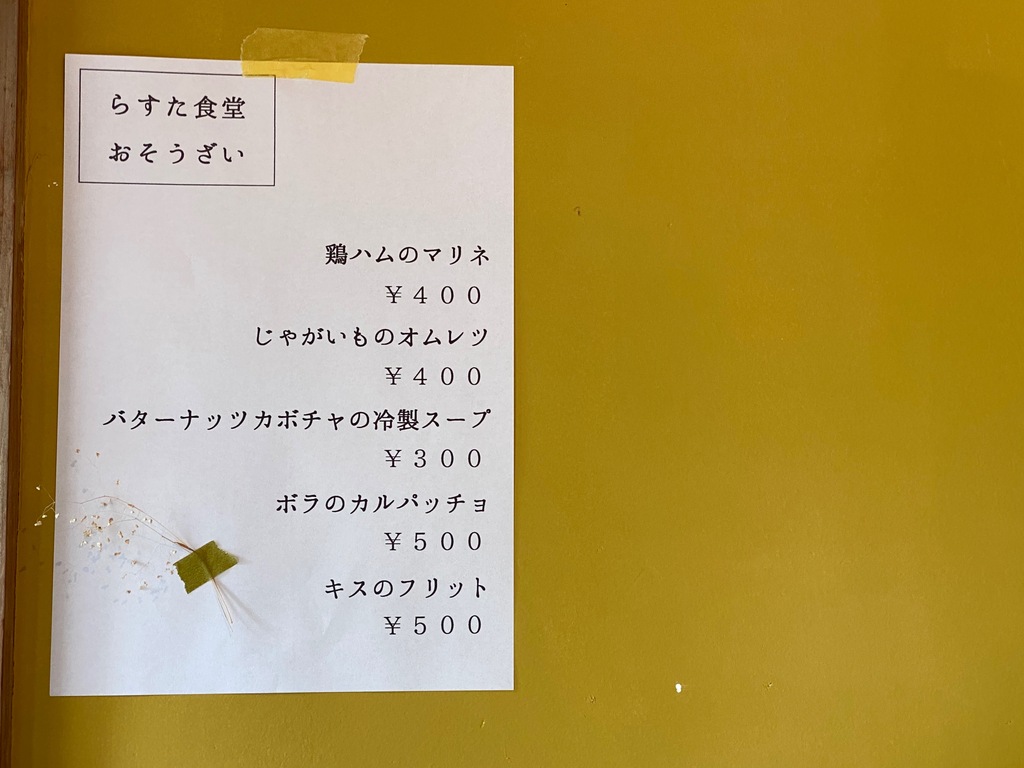 らすた食堂
おそうざい
鶏ハムのマリネ
￥４００
じゃがいものオムレツ
￥４００
バターナッツカボチャの冷製スープ
￥３００
ボラのカルパッチョ
￥５００
キスのフリット
￥５００